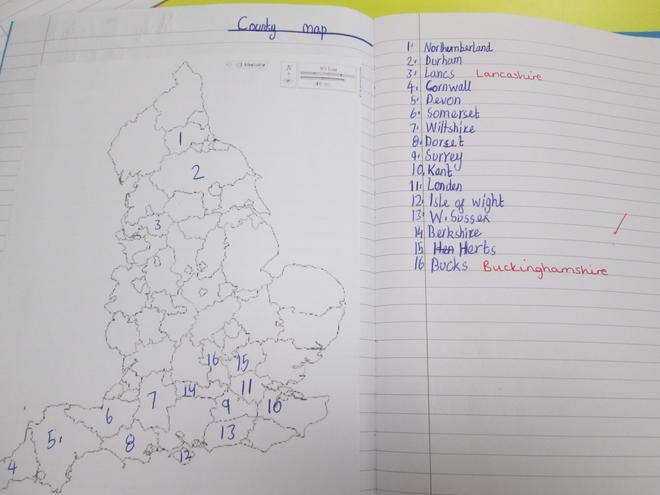 County map
N
1
2
3
16
15
14
11
7
9
10
6
5.
8
13
4
12
1. Northumberland
2. Durham
3. Lancs Lancashire
4. Cornwall
5. Devon
6. Somerset
7. Wiltshire
8. Dorset
9. Surrey
10. Kent
11. London
12. Isle of wight
13. W. Sussex
14 Berkshire
15 Herts
16 Bucks Buckinghamshire